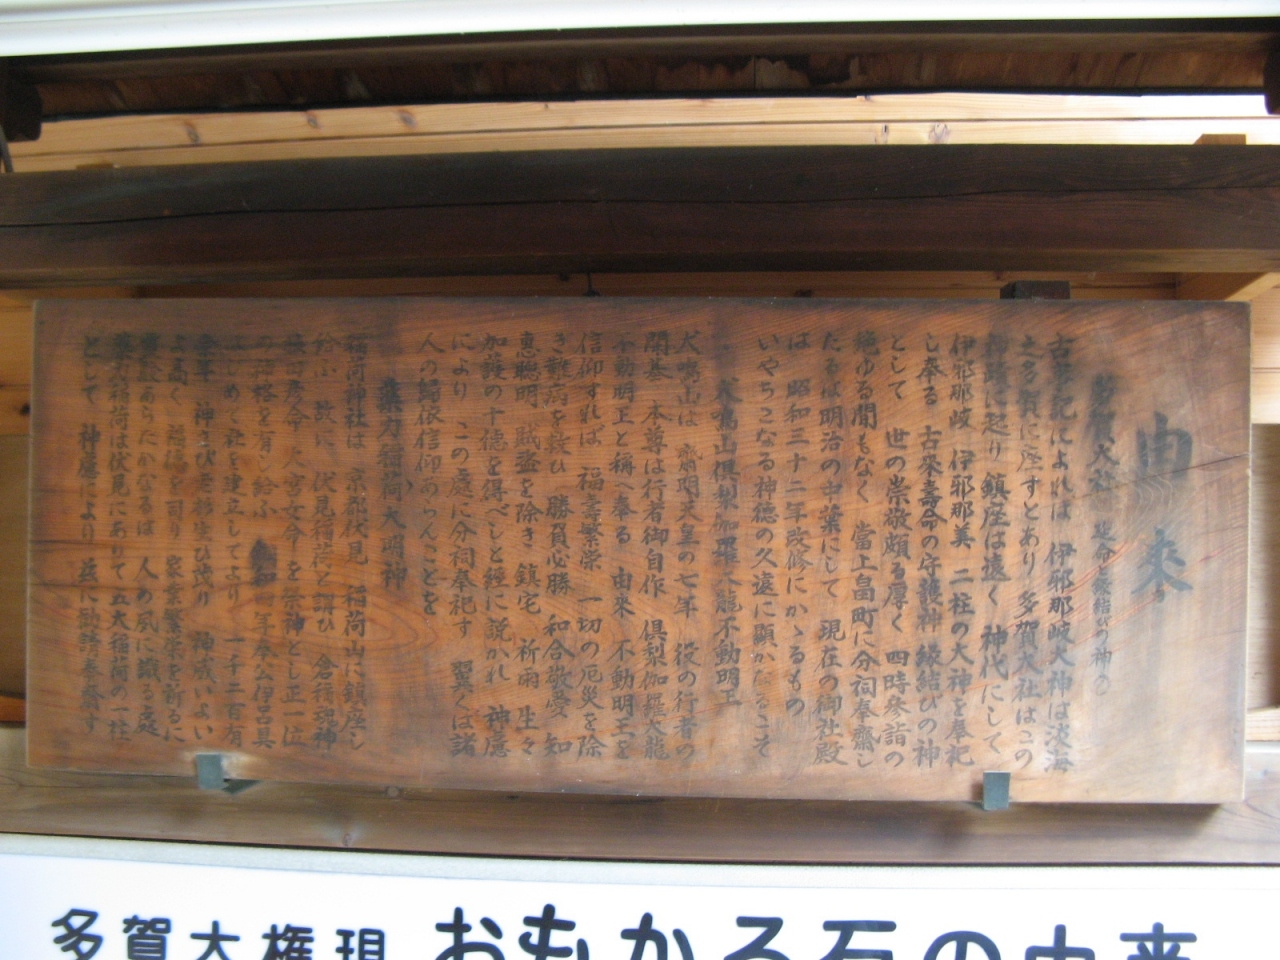 由来
多賀大社 延命と縁結びの神の
古事記によれば 伊邪那岐大神は淡海
之多賀に座すとあり 多賀大社はこの
神話に起り 鎮座は遠く 神代にして
伊邪那岐 伊邪那美 二柱の大神を奉祀
し奉る 古来寿命の守護神 縁結びの神
として 世の崇敬頗る厚く 四時参詣の
絶ゆる間もなく 當上畠町に分祠奉齋し
たるは明治の中葉にして 現在の御社殿
は 昭和三十二年改修にかゝるもの
いやちこなる神徳の久遠に顕かなるこそ
犬鳴山倶梨伽羅大龍不動明王
犬鳴山は 齋明天皇の七年 役の行者の
開基 本尊は行者御自作 倶梨伽羅大龍
不動明王と稱へ奉る 由来 不動明王を
信仰すれば 福壽繁栄 一切の厄災を除
き難病を救ひ 勝負必勝 和合敬愛 知
恵聡明 賊盗を除き 鎮宅 祈雨 生々
加護の十徳を得べしと經に説かれ 神慮
により この處に分祠奉祀す 冀くは諸
人の歸依信仰あらんことを
薬力稲荷大明神
稲荷神社は 京都伏見 稲荷山に鎮座し
給ふ 故に 伏見稲荷と謂ひ 倉稲魂神
猿田彦命 大宮女命を祭神とし正一位
の神格を有し給ふ 和銅四年秦公伊呂具
はじめて社を建立してより 一千二百有
余年 神さび老杉生ひ茂り 神威いよい
よ高く 福徳を司り 家業繁栄を祈るに
霊験あらたかなるは 人の夙に識る處
薬力稲荷は伏見にありて五大稲荷の一柱
として 神慮により 茲に勧請奉齋す
多賀大権現 おもかる石の由来